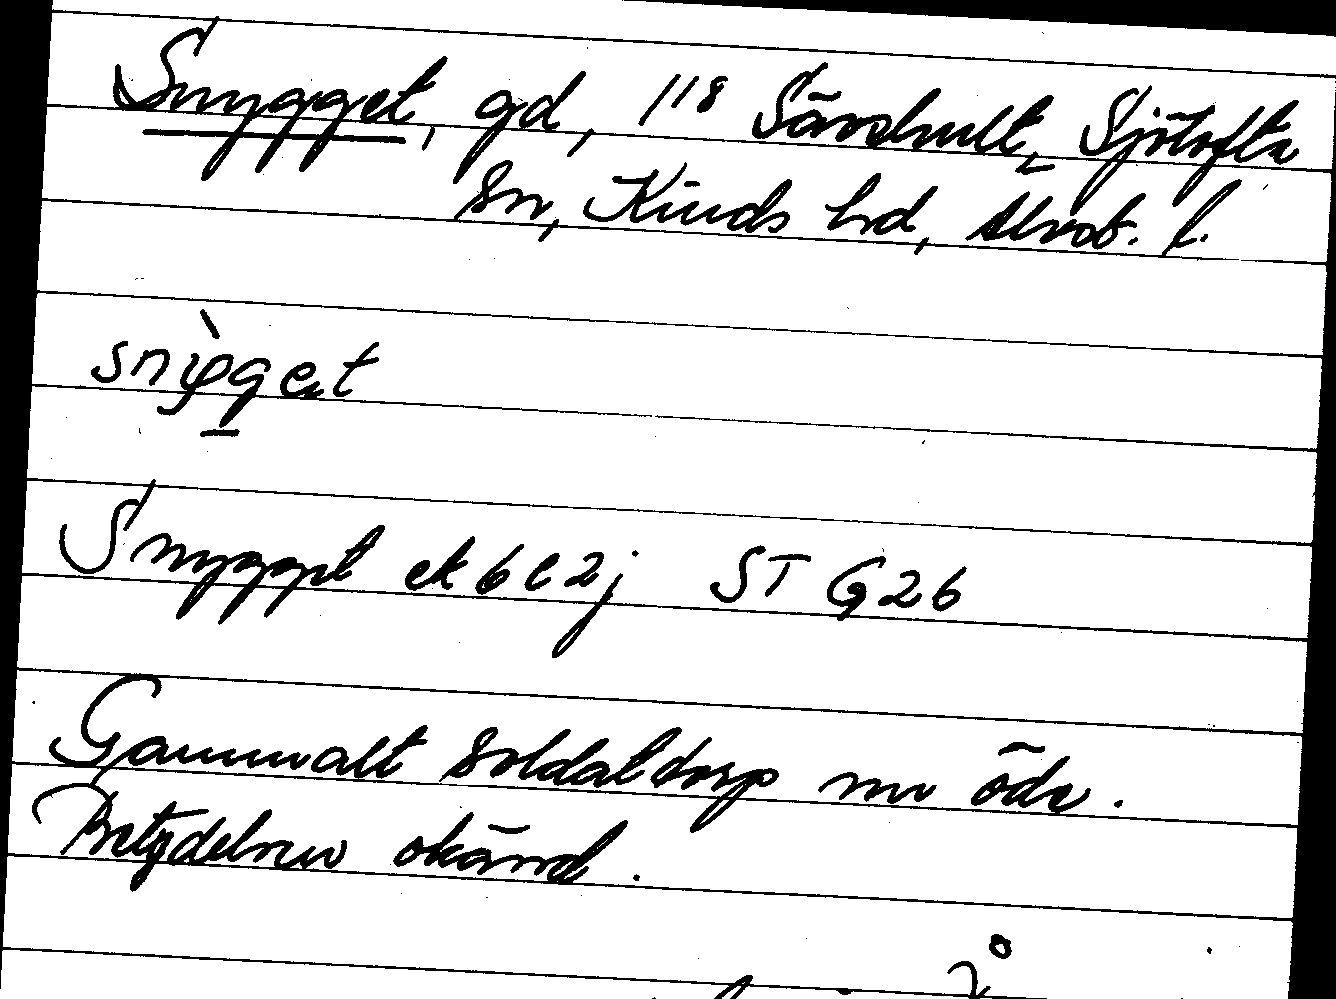 Snygget, gd, 1/8 Särshult, Sjötofta
sn, Kinds hrd, Älvsb. l.
snỳgget
Snygget ek 6e2j ST G26
Gammalt soldattorp nu öde.
Betydelsen okänd.